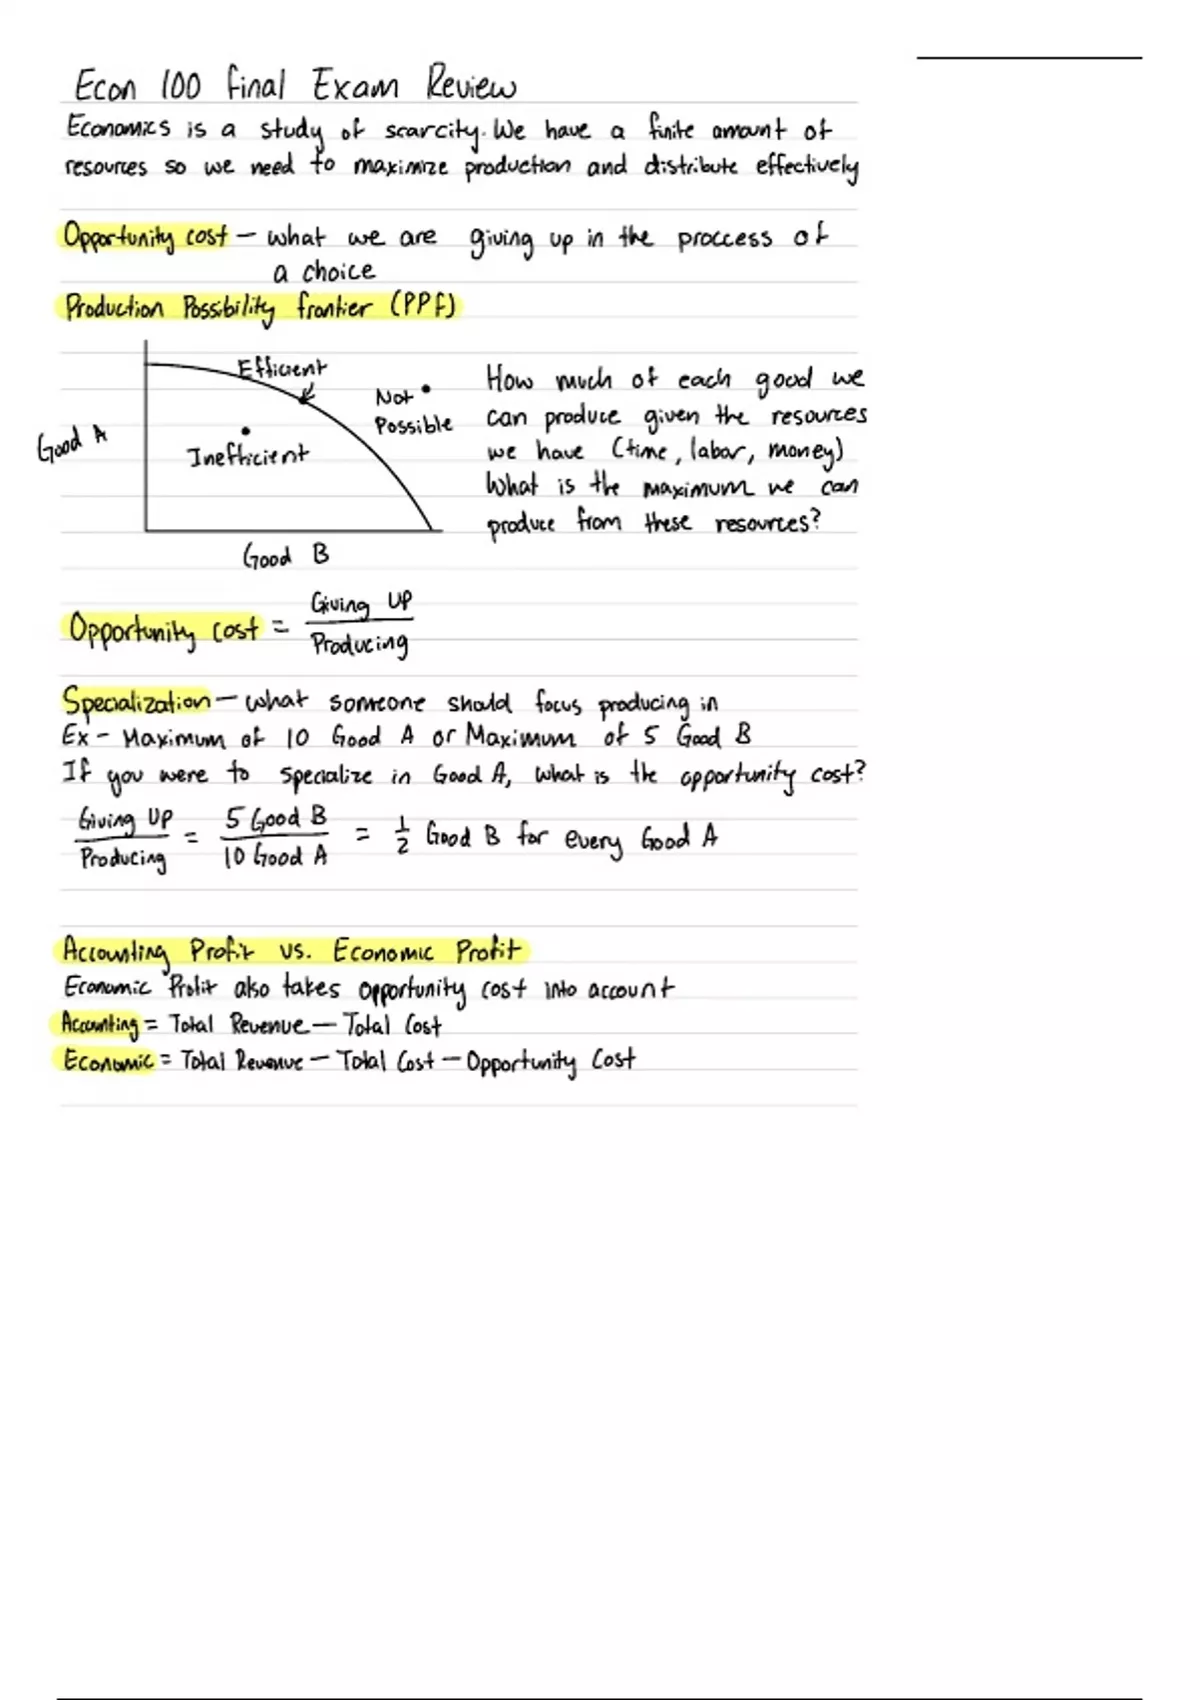 Econ 100 Final Exam Review
Economics is a study of scarcity. We have a finite amount of
resources so we need to maximize production and distribute effectively
Opportunity cost — what we are giving up in the proccess of
a choice
Production Possibility frontier (PPF)
Efficient
Not
Possible
Inefficient
Good A
Good B
How much of each good we
can produce given the resources
we have (time, labor, money)
What is the maximum we can
produce from these resources?
Opportunity cost = Giving up
Producing
Specialization — what someone should focus producing in
Ex - Maximum of 10 Good A or Maximum of 5 Good B
If you were to specialize in Good A, what is the opportunity cost?
Giving Up = 5 Good B = 1/2 Good B for every Good A
Producing 10 Good A
Accounting Profit vs. Economic Profit
Economic Profit also takes opportunity cost into account
Accounting = Total Revenue — Total Cost
Economic = Total Revenue — Total Cost — Opportunity Cost